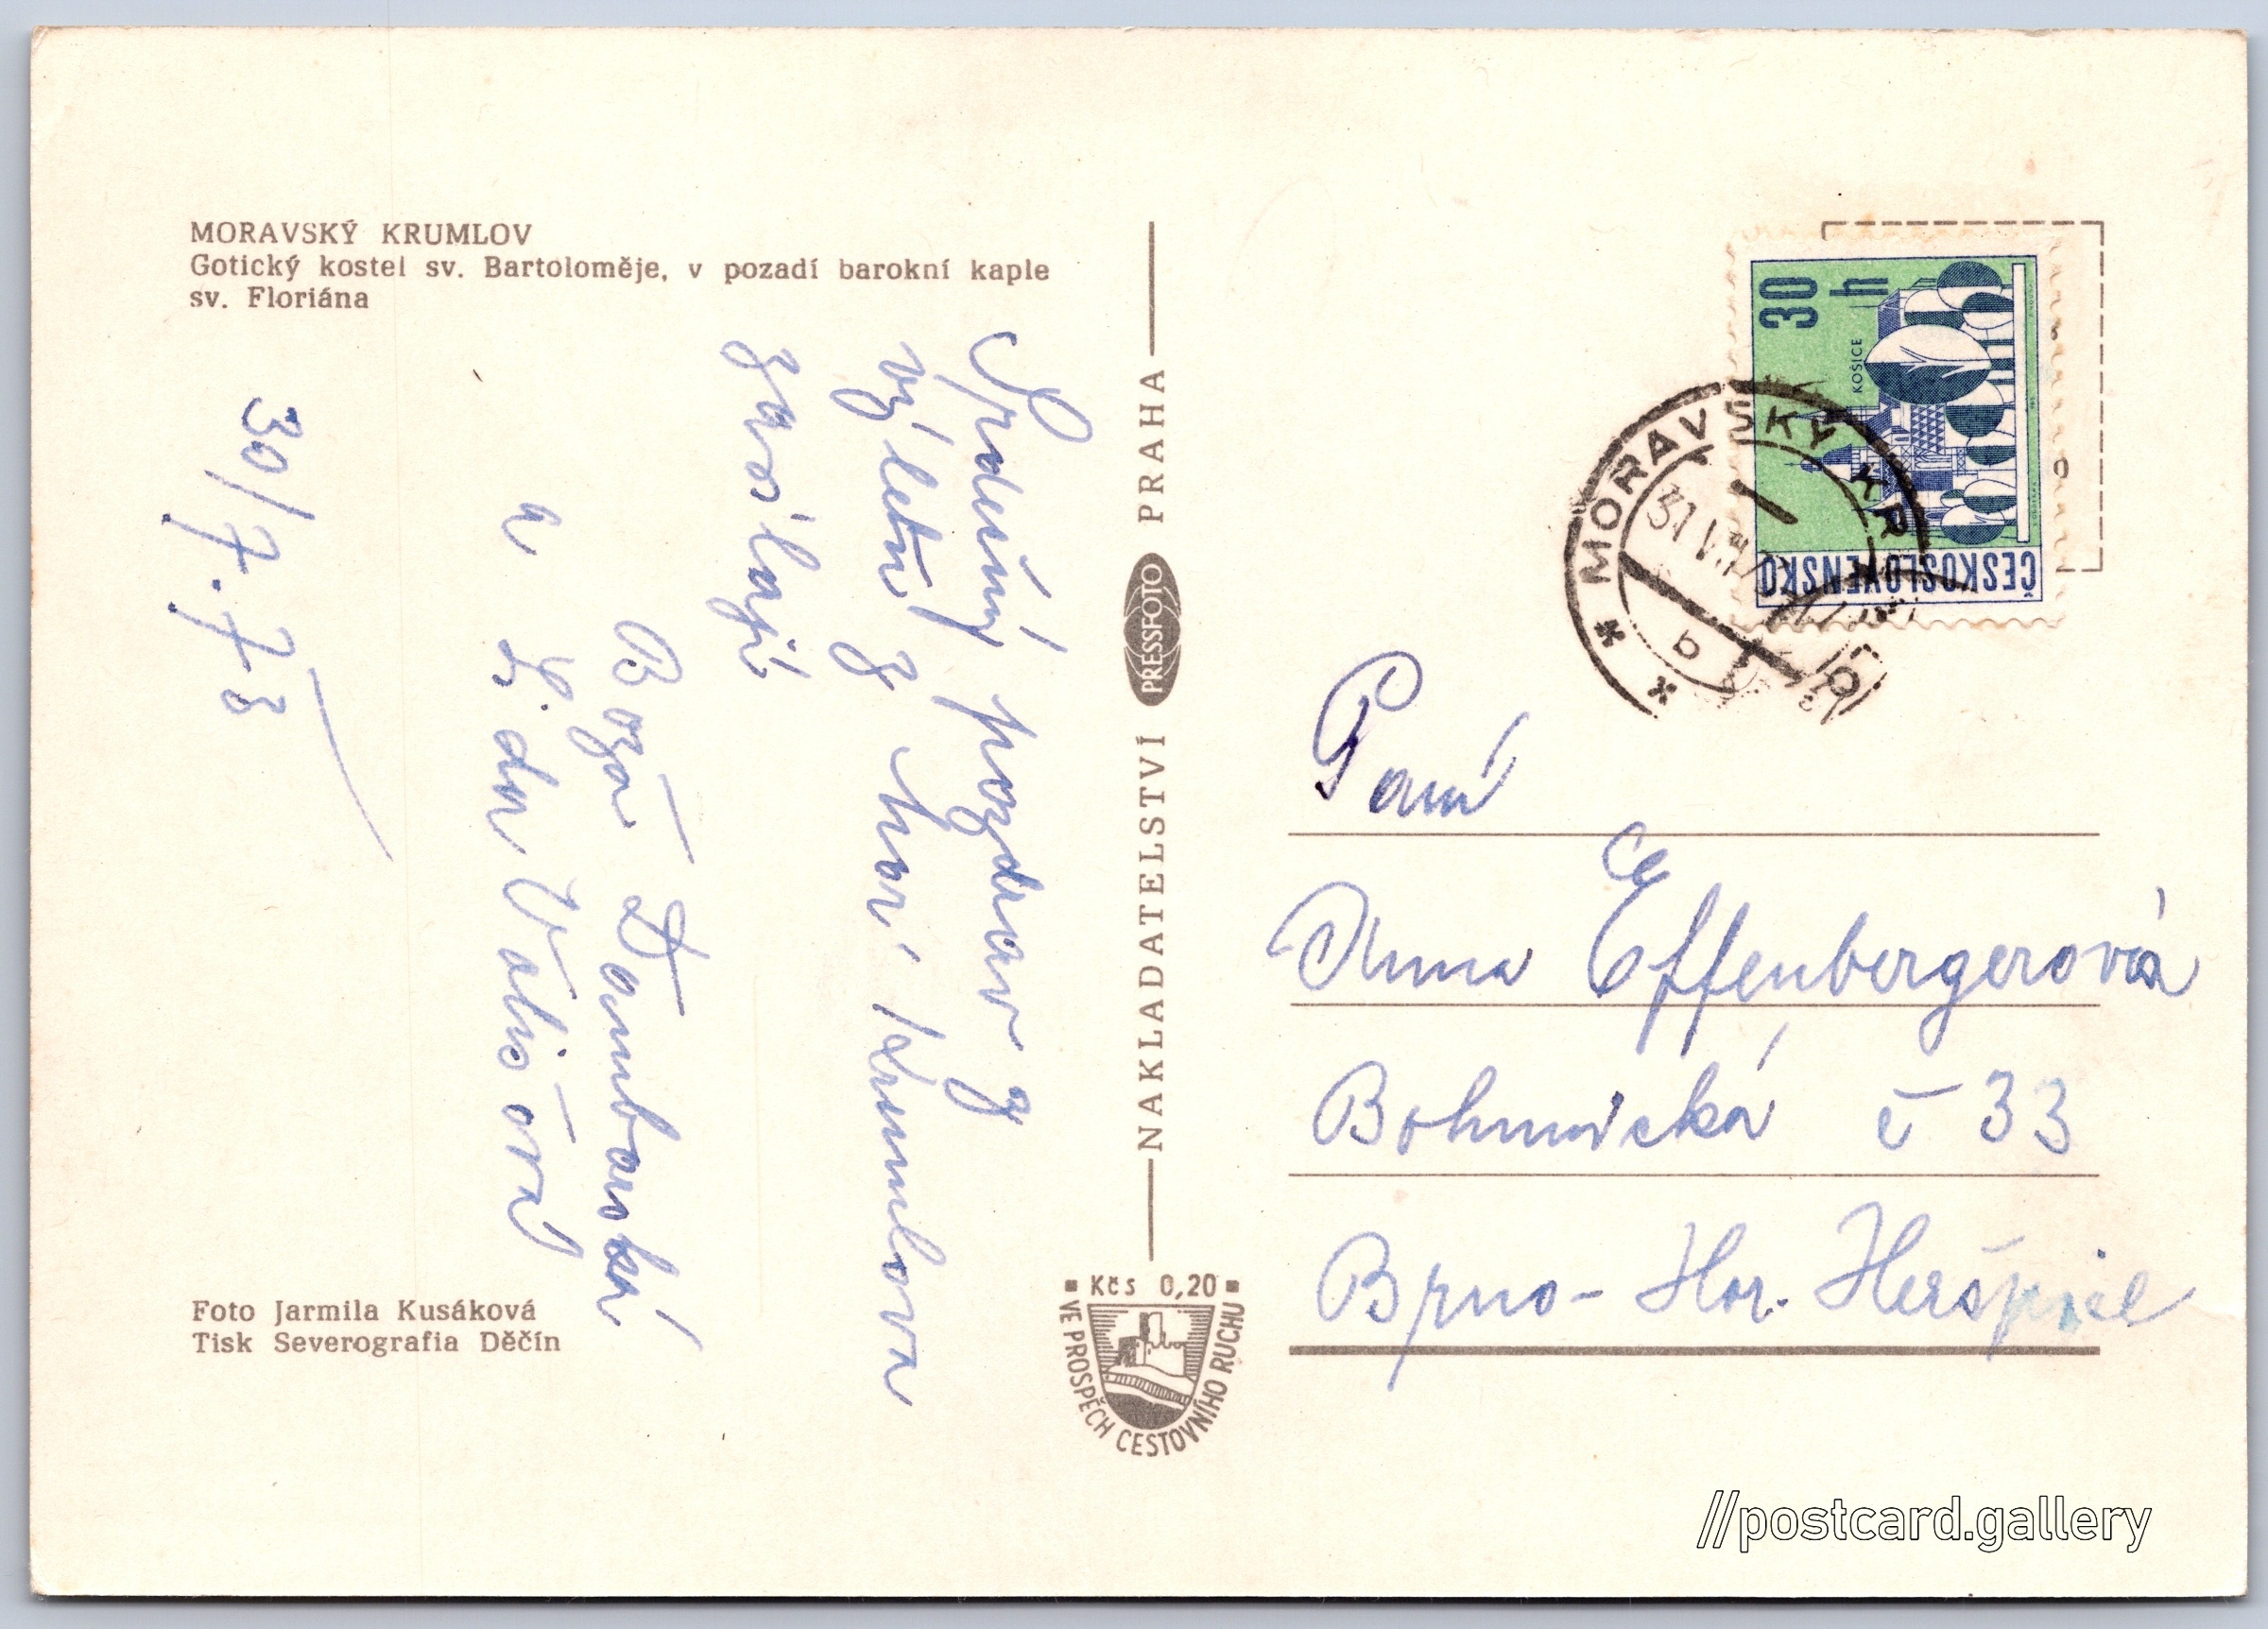 MORAVSKÝ KRUMLOV
Gotický kostel sv. Bartoloměje, v pozadí barokní kaple
sv. Floriána
Srdečný pozdrav z
výletu z Mor. Krumlova
zasílají
Boža
a Lida
30/7.73
Foto Jarmila Kusáková
Tisk Severografia Děčín
NAKLADATELSTVÍ PRESSFOTO PRAHA
Kčs 0,20
VE PROSPĚCH CESTOVNÍHO RUCHU
30 h
KOŠICE
ČESKOSLOVENSKO
MORAVSKÝ KR
31 V
a
Paní
Anna Effenbergerová
Bohunická č 33
Brno - Hor. Heršpice
//postcard.gallery